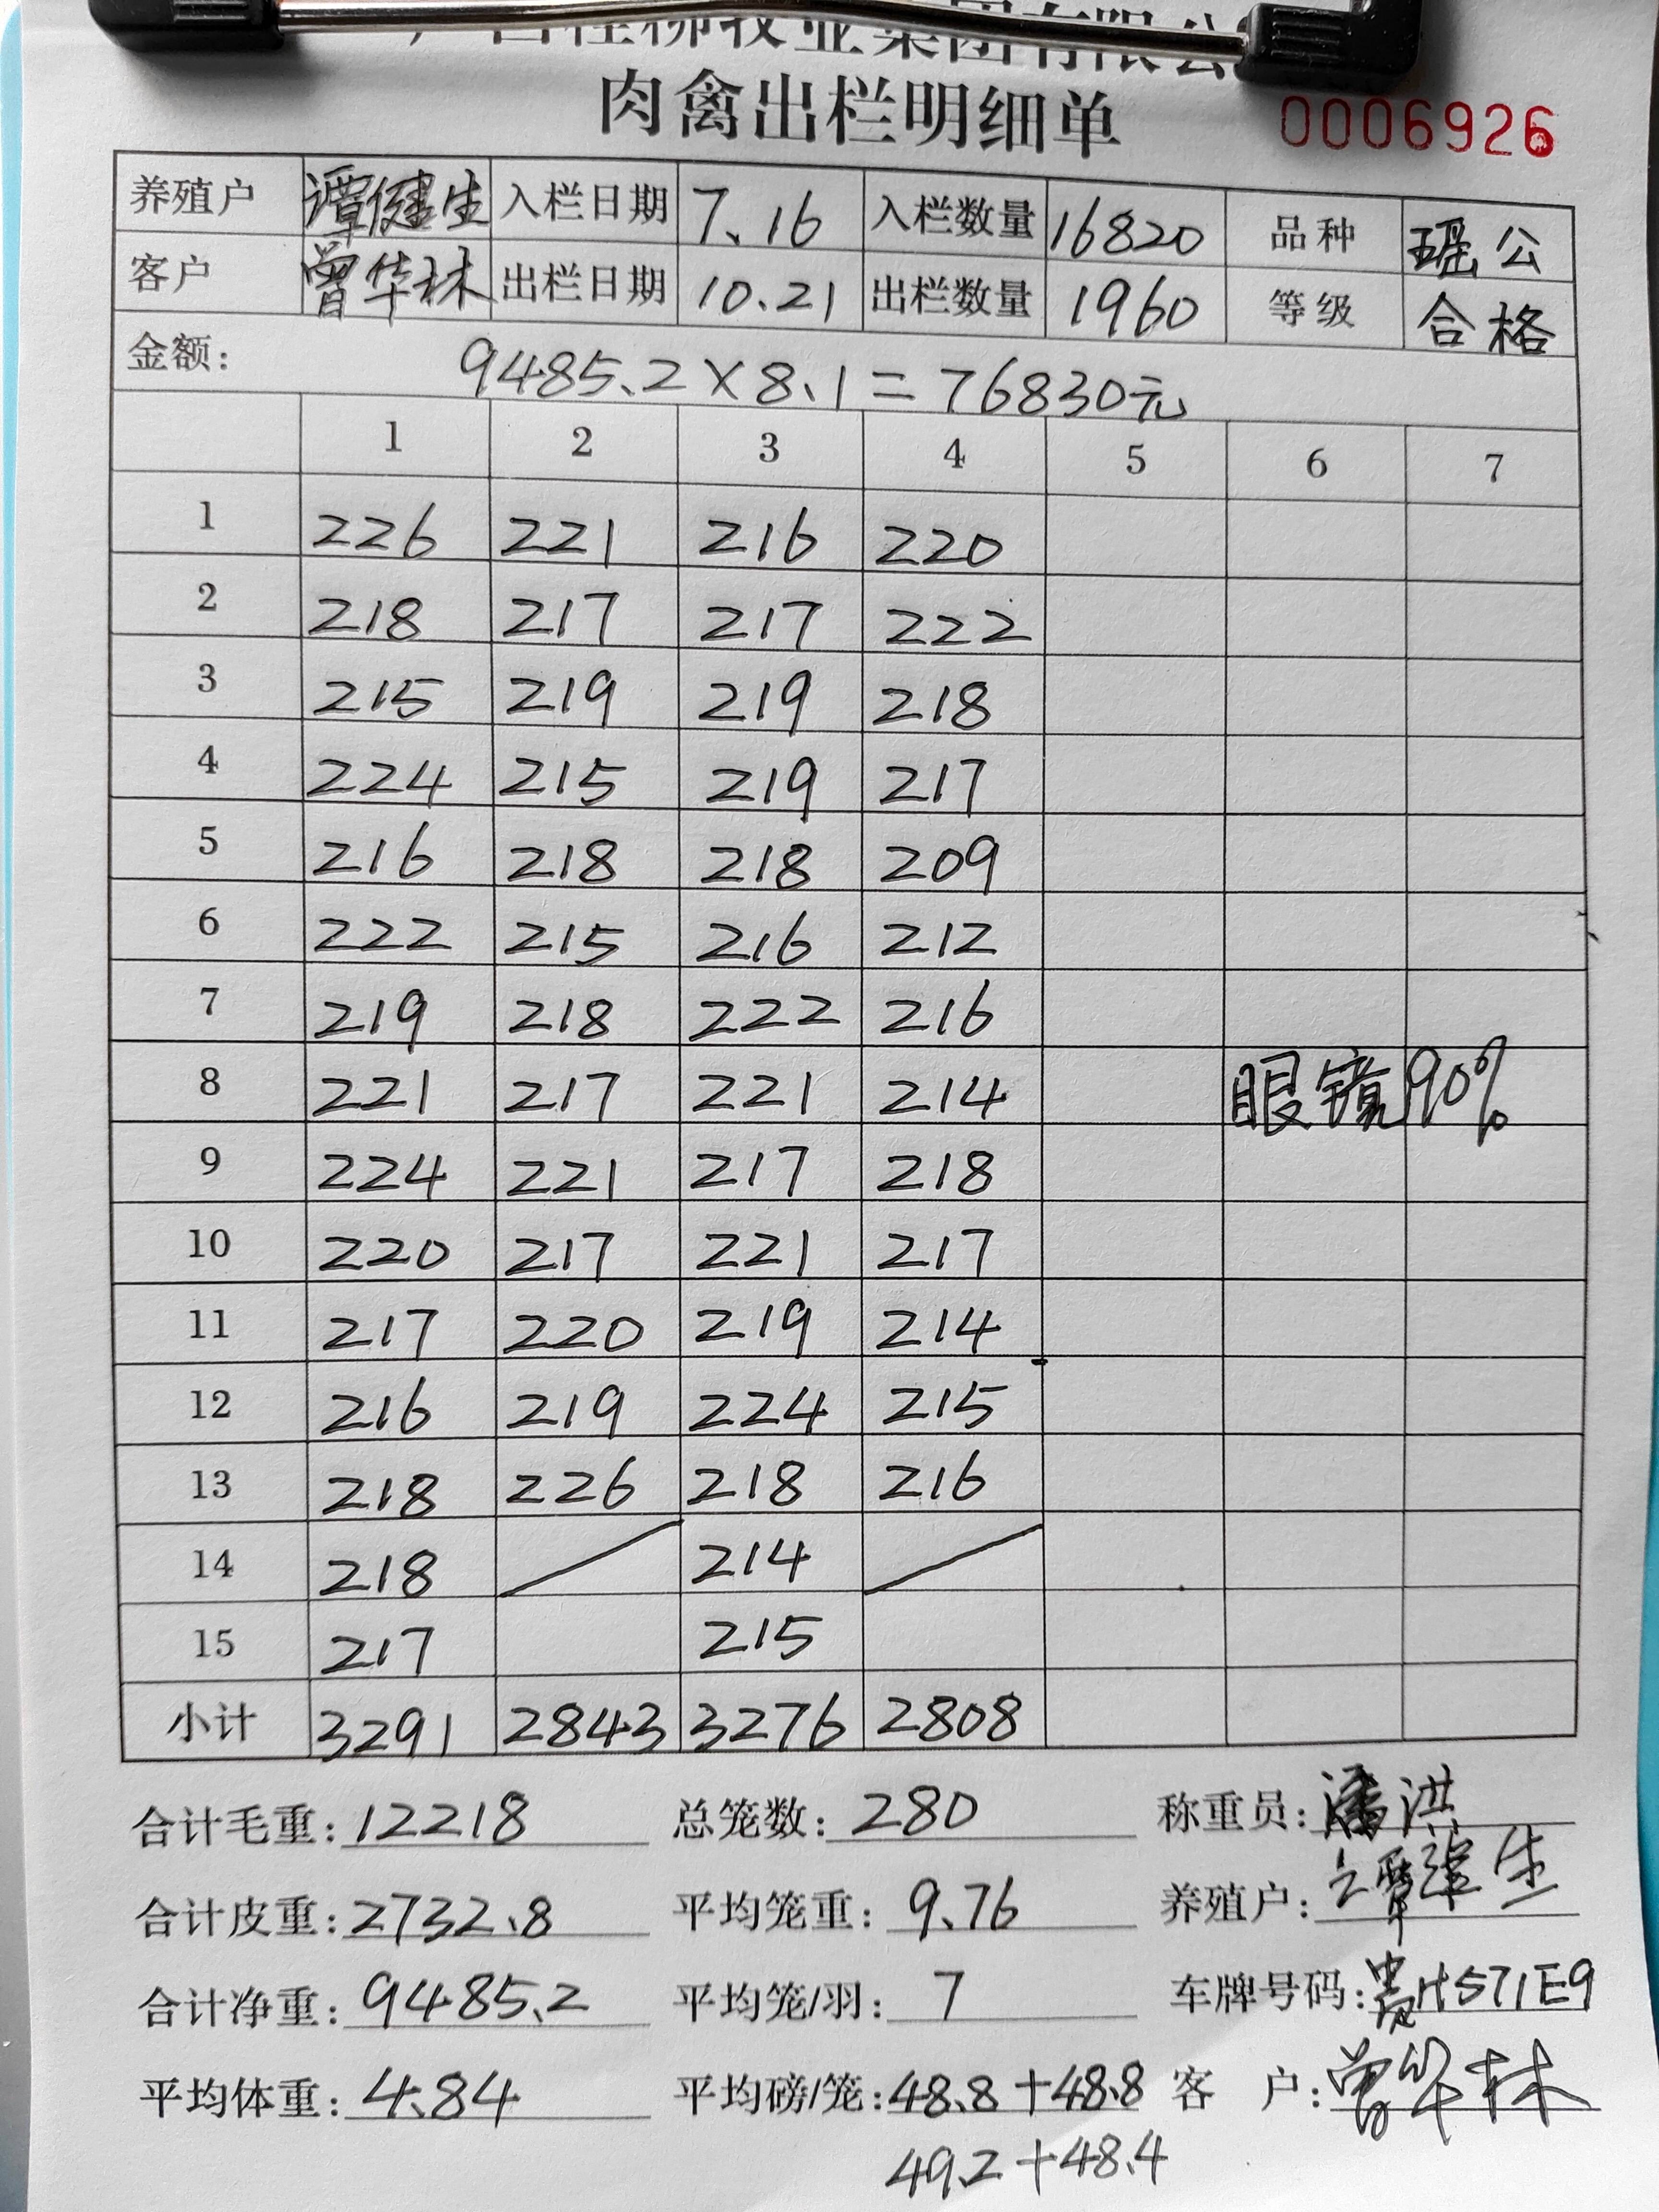 肉禽出栏明细单 0006926
养殖户 谭健生 入栏日期 7.16 入栏数量 16820 品种 瑶公
客户 曾华林 出栏日期 10.21 出栏数量 1960 等级 合格
金额: 9485.2×8.1=76830元
1 2 3 4 5 6 7
1 226 221 216 220
2 218 217 217 222
3 215 219 219 218
4 224 215 219 217
5 216 218 218 209
6 222 215 216 212
7 219 218 222 216
8 221 217 221 214 眼镜90%
9 224 221 217 218
10 220 217 221 217
11 217 220 219 214
12 216 219 224 215
13 218 226 218 216
14 218 214
15 217 215
小计 3291 2843 3276 2808
合计毛重: 12218 总笼数: 280 称重员: 潘洪
合计皮重: 2732.8 平均笼重: 9.76 养殖户: 谭健生
合计净重: 9485.2 平均笼/羽: 7 车牌号码: 贵H571E9
平均体重: 4.84 平均磅/笼: 48.8+48.8 客 户: 曾华林
49.2+48.4